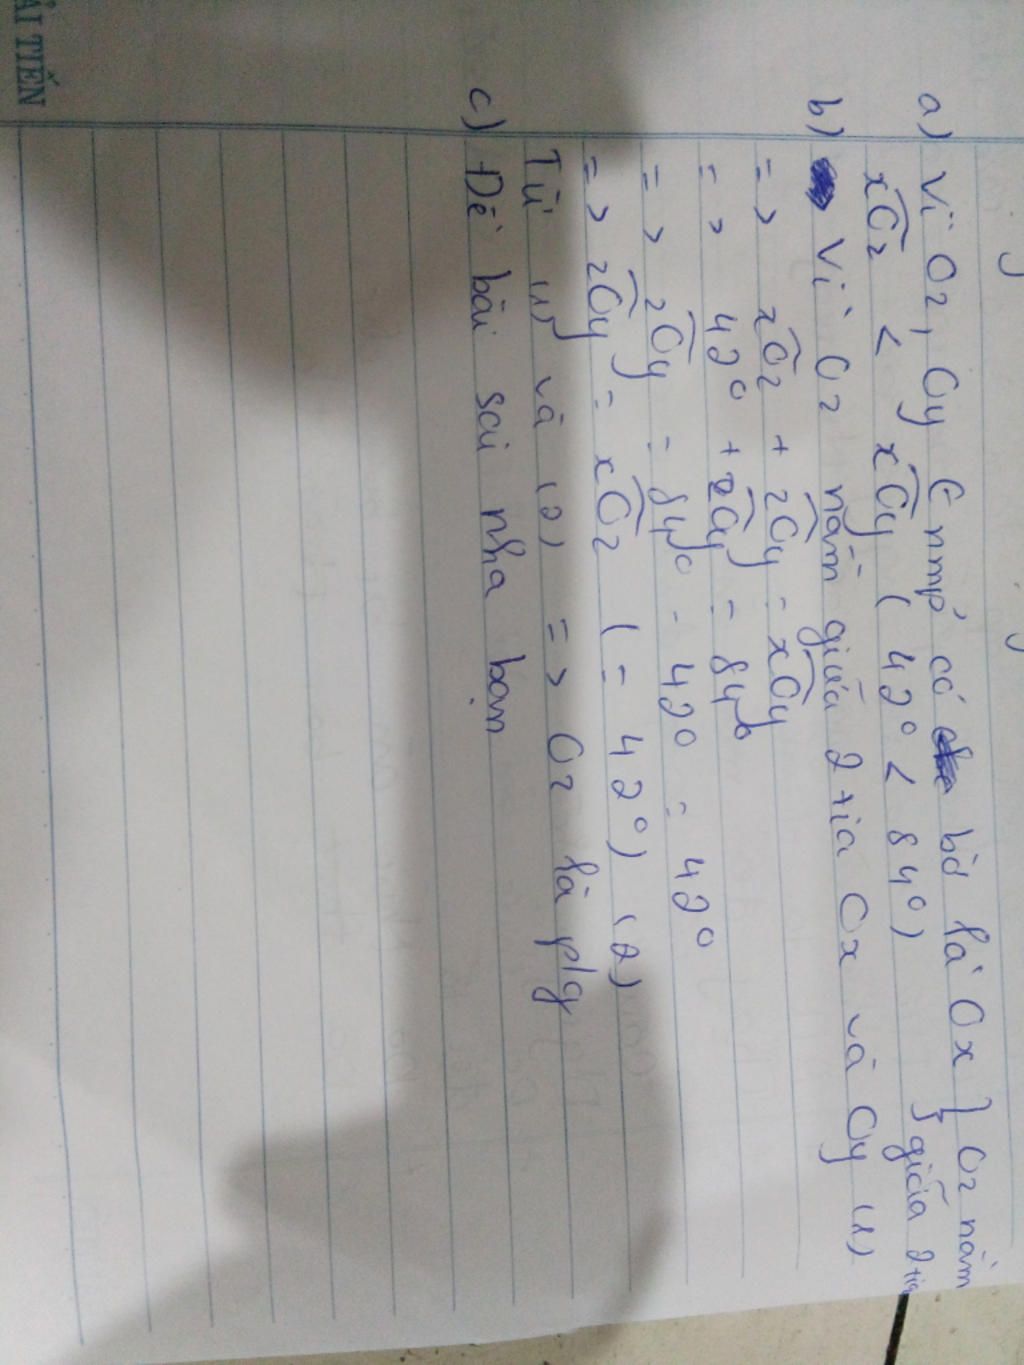 a) Vì Oz, Oy ∈ nmp' có bờ là Ox } Oz nằm
xÔz < xÔy ( 42° < 84° ) } giữa 2 tia
b) Vì Oz nằm giữa 2 tia Ox và Oy (1)
=> xÔz + zÔy = xÔy
=> 42° + zÔy = 84°
=> zÔy = 84° - 42° = 42°
=> zÔy = xÔz ( = 42° ) (2)
Từ (1) và (2) => Oz là p/g
c) Đề bài sai nha bạn
ẢI TIẾN